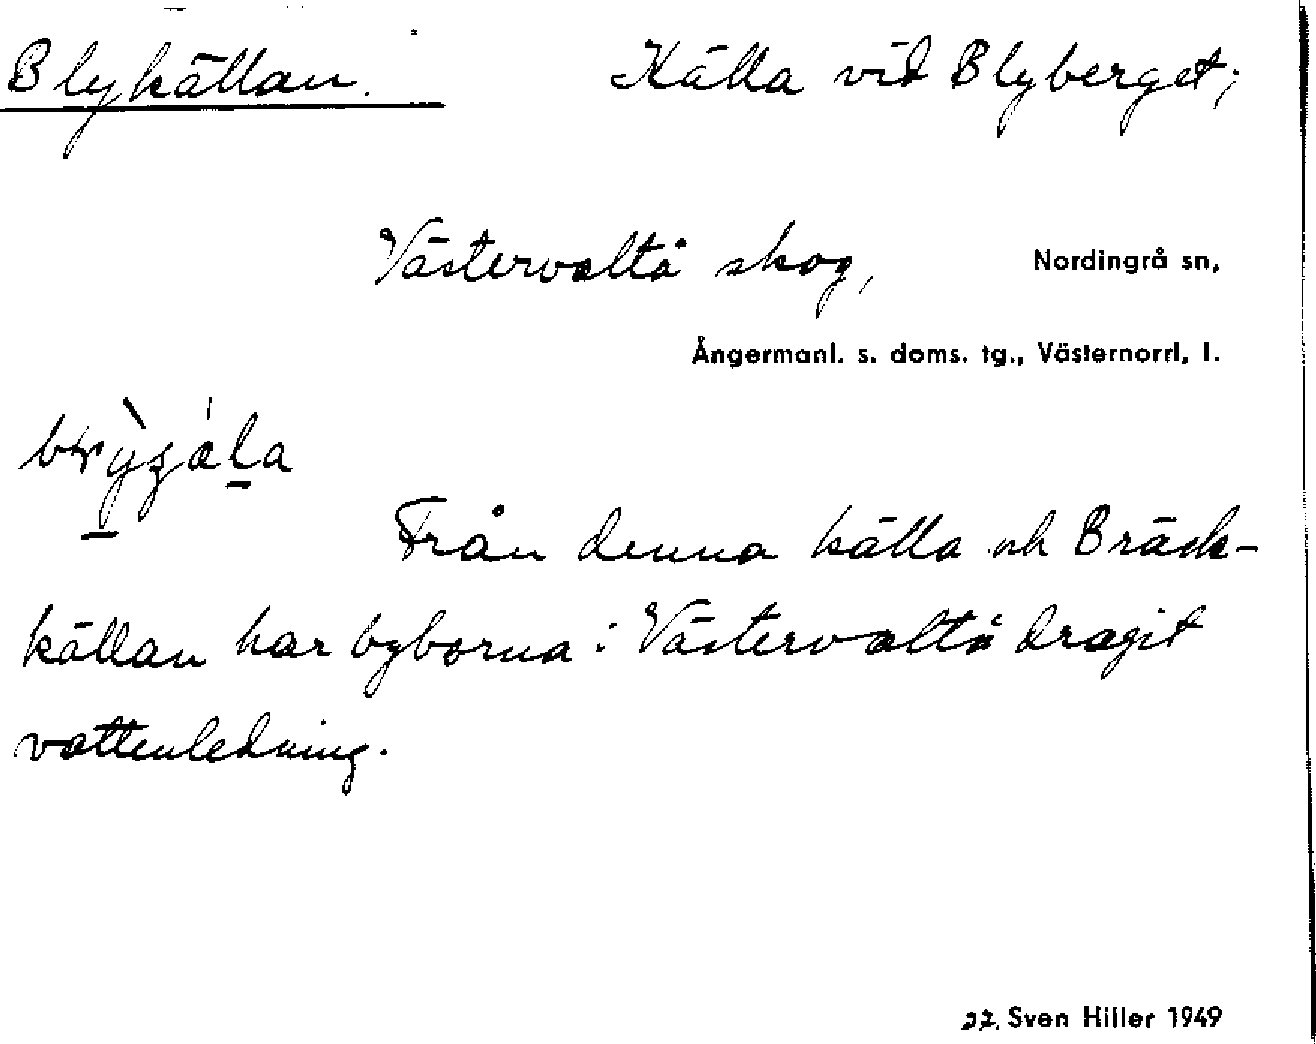 Blykällan. Källa vid Blyberget;
Västervaltå skog, Nordingrå sn,
Ångermanl. s. doms. tg., Västernorrl. l.
Från denna källa och Bräck-
källan har byborna i Västervaltå dragit
vattenledning.
Sven Hiller 1949